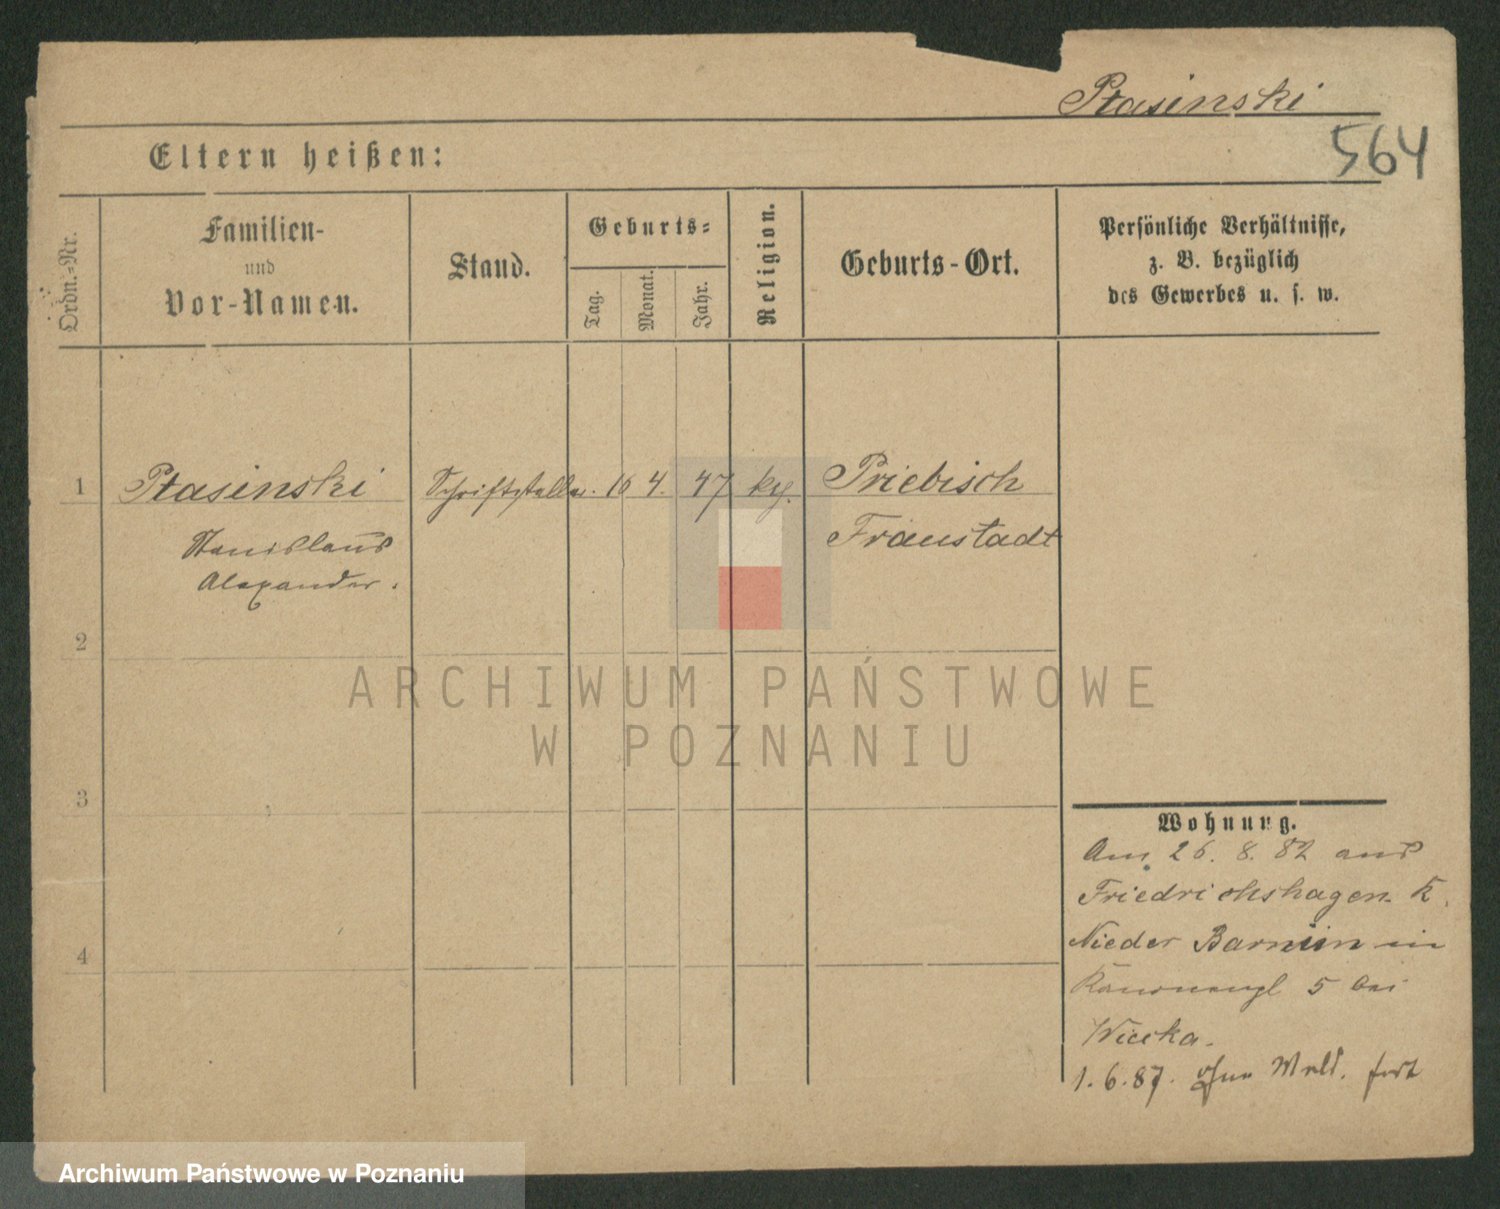 Ptasinski
564
Eltern heißen:
Ordn.-Nr.
Familien-
und
Vor-Namen.
Stand.
Geburts-
Tag.
Monat.
Jahr.
Religion.
Geburts-Ort.
Persönliche Verhältnisse,
z. B. bezüglich
des Gewerbes u. s. w.
1 Ptasinski Schriftsteller. 10 4. 47 Priebisch
Stanislaus Fraustadt
Alexander.
2
ARCHIWUM PAŃSTWOWE
W POZNANIU
3
4
Wohnung.
Am 26. 8. 82 aus
Friedrichshagen K.
Nieder Barnim in
5 bei
Wiecka.
1. 6. 87. ohne Meld. fort
Archiwum Państwowe w Poznaniu